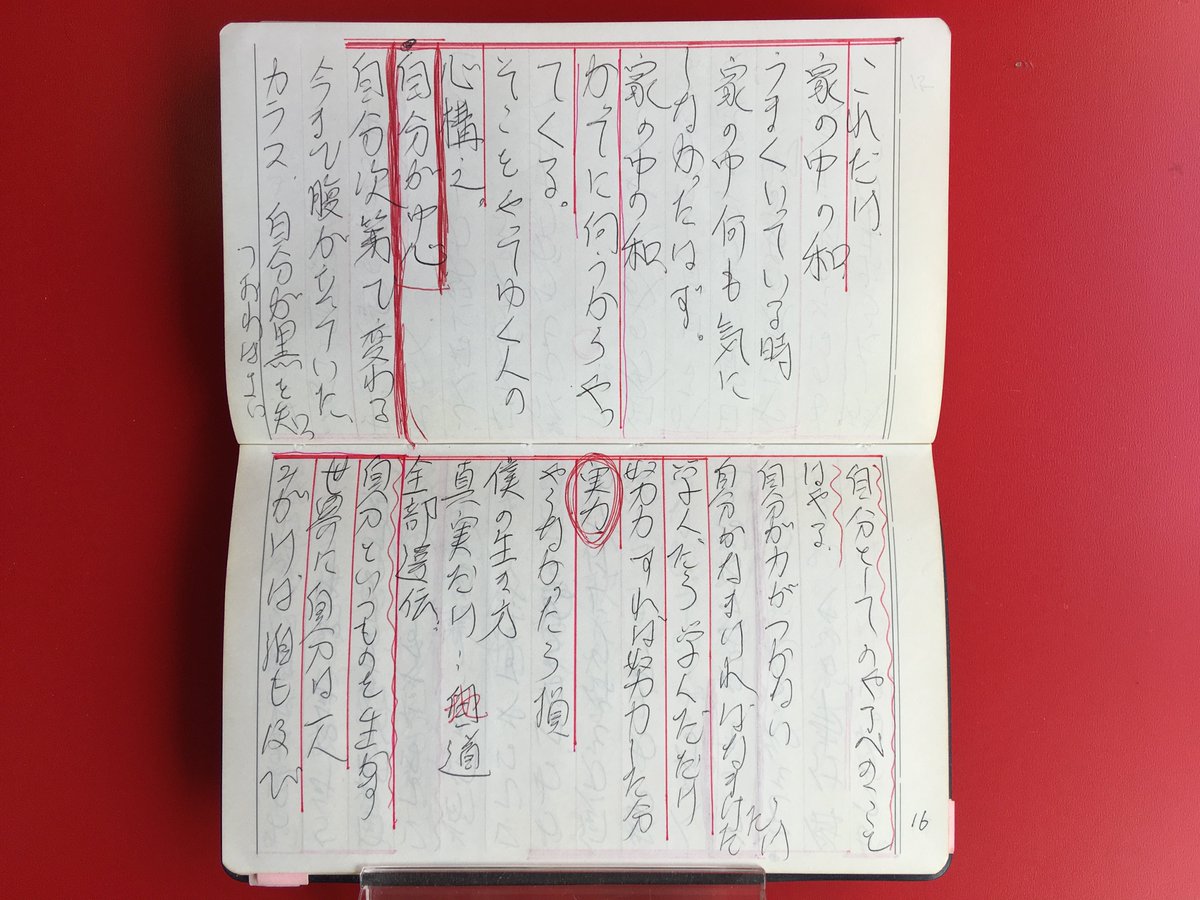 これだけ、
家の中の和、
うまくいている時
家の中何も気に
しなかったはず。
家の中の和、
かってに何うからやっ
てくる。
そこをやってゆく人の
心構え。
自分が中心
自分次第で変わる
今まで腹が立っていた、
カラス、自分が黒を知っ
つおればよい
自分としてのやるべきこと
はやる、
自分が力がつかない
自分がなまければなまけた
だけ
学んだら学んだだけ
努力すれば努力した分
実力
やらなかったら損
僕の生き方
真実だけ
道
全部遺伝、
自分というものを生かす
世界に自分は一人
みがけば
16